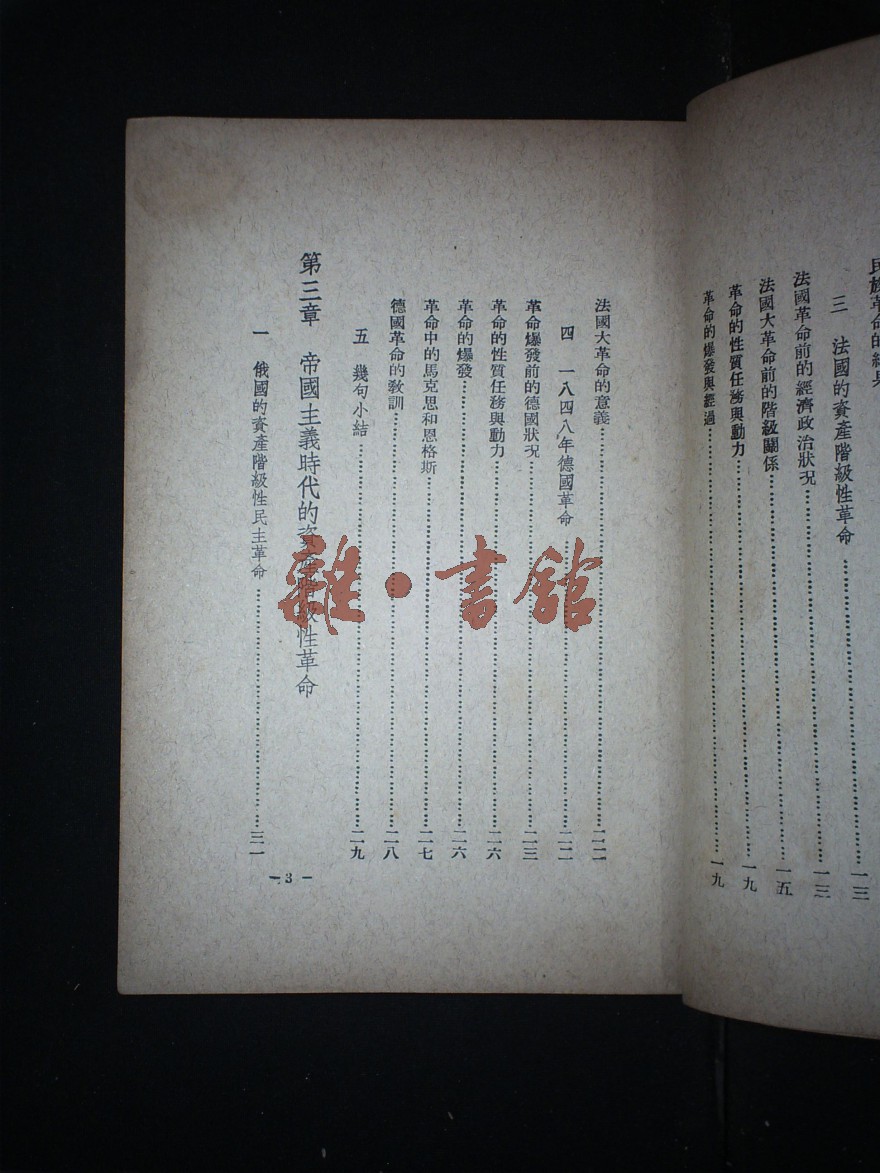 三　法國的資產階級性革命……一三
法國革命前的經濟政治狀況……一三
法國大革命前的階級關係……一五
革命的性質任務與動力……一九
革命的爆發與經過……一九
法國大革命的意義……二二
四　一八四八年德國革命……二二
革命爆發前的德國狀況……二三
革命的性質任務與動力……二六
革命的爆發……二六
革命中的馬克思和恩格斯……二七
德國革命的教訓……二八
五　幾句小結……二九
第三章　帝國主義時代的資產階級性革命
一　俄國的資產階級性民主革命……三一
- 3 -
雜·書館